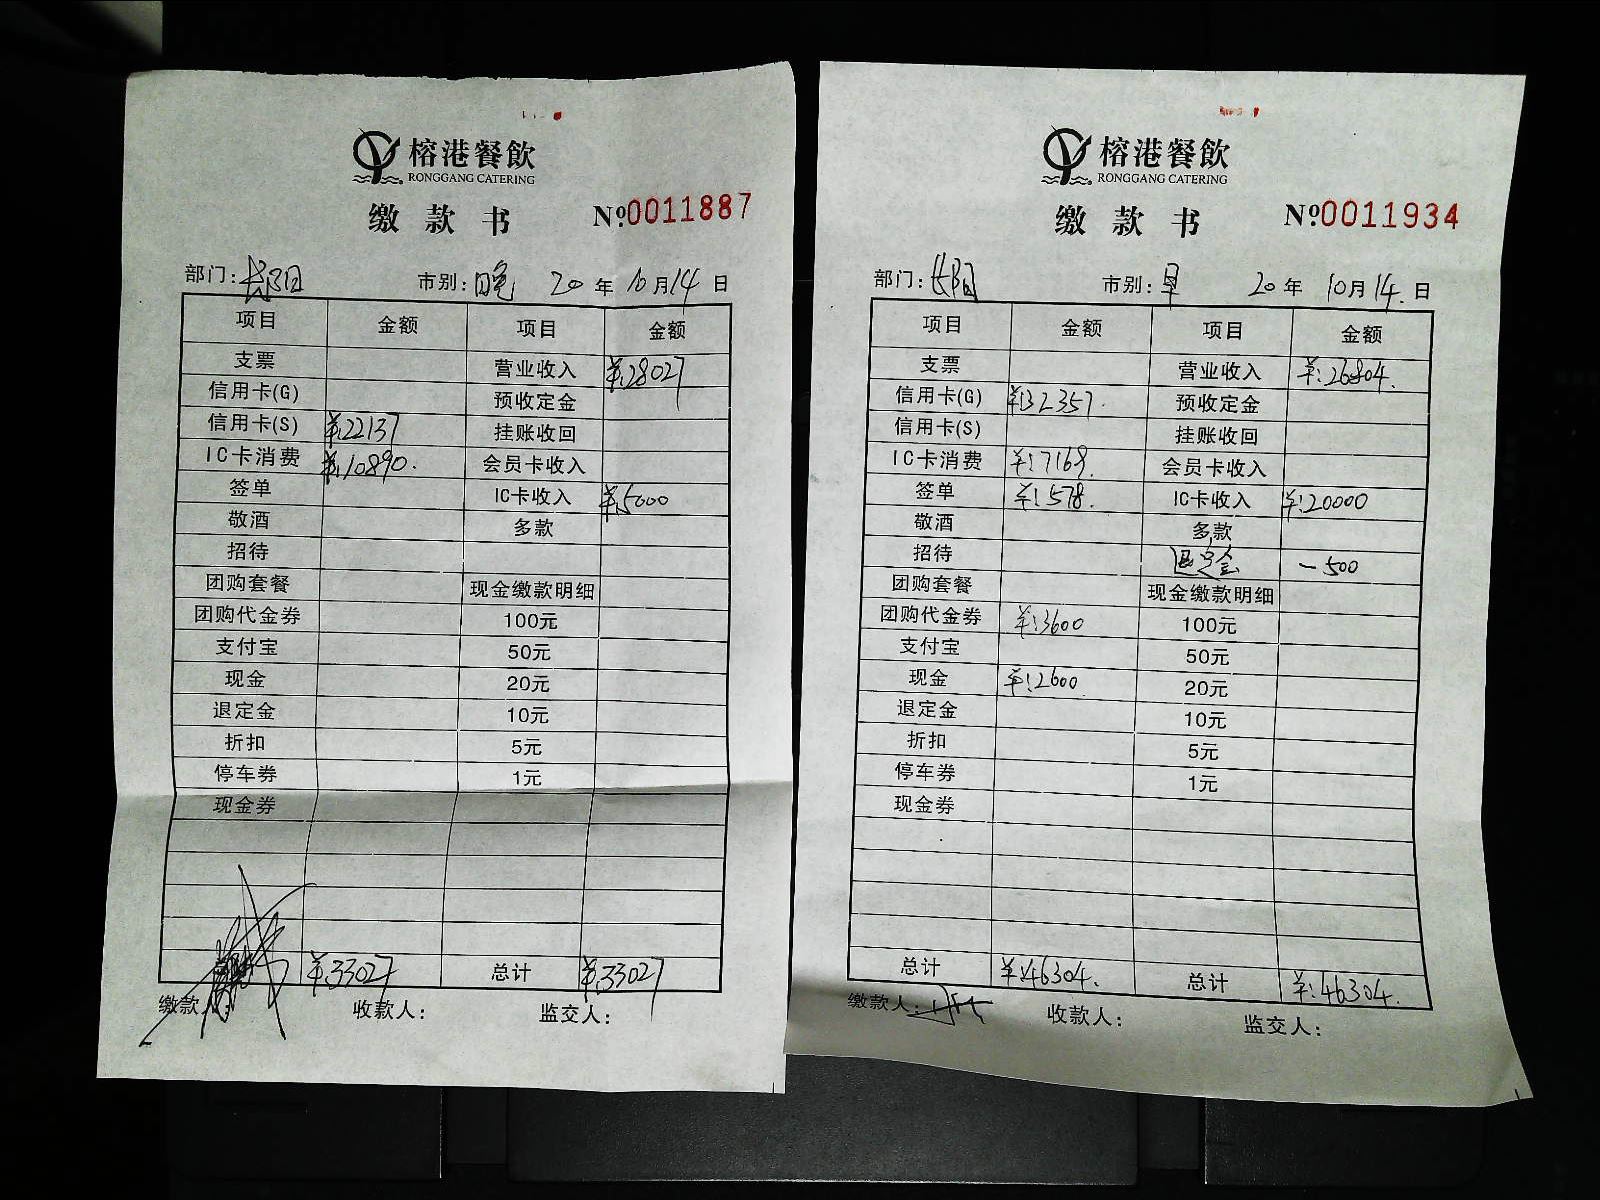 榕港餐飲
RONGGANG CATERING
缴款书 №0011887
部门: 市别:晚 20年10月14日
项目 金额 项目 金额
支票 营业收入 ¥:28027
信用卡(G) 预收定金
信用卡(S) ¥:22137 挂账收回
IC卡消费 ¥:10890. 会员卡收入
签单 IC卡收入 ¥:5000
敬酒 多款
招待
团购套餐 现金缴款明细
团购代金券 100元
支付宝 50元
现金 20元
退定金 10元
折扣 5元
停车券 1元
现金券
¥:33027 总计 ¥:33027
缴款 收款人: 监交人:
榕港餐飲
RONGGANG CATERING
缴款书 №0011934
部门: 市别:早 20年10月14.日
项目 金额 项目 金额
支票 营业收入 ¥:26804.
信用卡(G) ¥:32357. 预收定金
信用卡(S) 挂账收回
IC卡消费 ¥:7169. 会员卡收入
签单 ¥:578. IC卡收入 ¥:20000
敬酒 多款
招待 退定金 -500
团购套餐 现金缴款明细
团购代金券 ¥:3600 100元
支付宝 50元
现金 ¥:2600 20元
退定金 10元
折扣 5元
停车券 1元
现金券
总计 ¥:46304. 总计 ¥:46304.
缴款人: 收款人: 监交人: